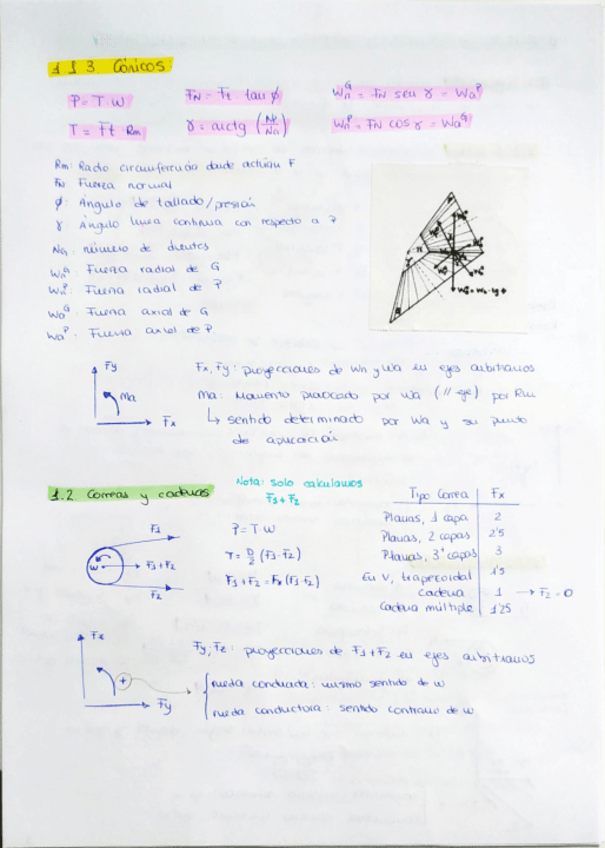 1.1.3. Cónicos
P = T·W
FN = Ft tan ϕ
WnG = FN sen γ = WaP
T = Ft · Rm
γ = arctg (NP/NG)
WnP = FN cos γ = WaG
Rm: Radio circunferencia donde actúan F
FN: Fuerza normal
ϕ: Ángulo de tallado/presión
γ: Ángulo línea continua con respecto a P
NG: número de dientes
WnG: Fuerza radial de G
WnP: Fuerza radial de P
WaG: Fuerza axial de G
WaP: Fuerza axial de P
Fy
Ma
Fx
Fx, Fy: proyecciones de Wn y Wa en ejes arbitrarios
Ma: Momento provocado por Wa (// eje) por Rm
↳ sentido determinado por Wa y su punto
de aplicación
1.2 Correas y cadenas
Nota: solo calculamos
F1 + F2
F1
W
F1+F2
F2
P = T·W
T = D/2 (F1-F2)
F1 + F2 = Fx (F1-F2)
Tipo Correa Fx
Planas, 1 capa 2
Planas, 2 capas 2'5
Planas, 3+ capas 3
En V, trapezoidal 1'5
cadena 1 → F2 = 0
Cadena múltiple 1'25
Fx
+
Fy
Fy, Fz: proyecciones de F1+F2 en ejes arbitrarios
rueda conducida: mismo sentido de w
rueda conductora: sentido contrario de w